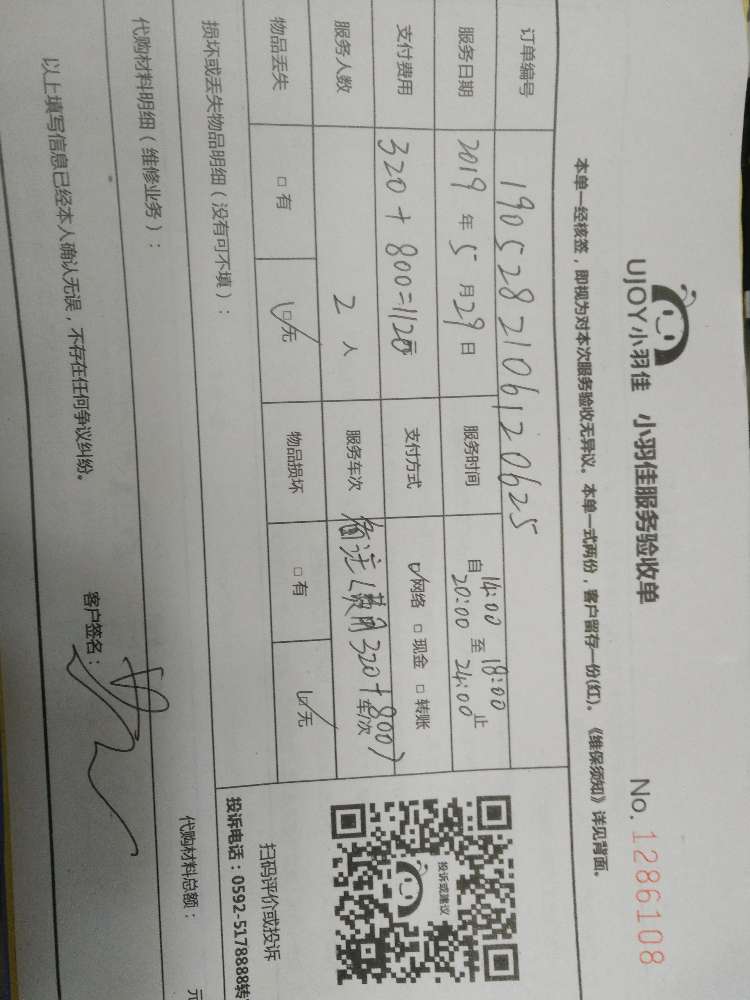 UJOY小羽佳 小羽佳服务验收单 No. 1286108
本单一经核签，即视为对本次服务验收无异议。本单一式两份，客户留存一份(红)。《维保须知》详见背面。
订单编号 190528210612062​5
服务日期 2019 年 5 月 29 日 服务时间 自 14:00 至 18:00 止
20:00 24:00
支付费用 320+800=1120元 支付方式 ☑网络 □现金 □转账
服务人数 2 人 服务车次 备注(费用320+800) 车/次
物品丢失 □有 ☑无 物品损坏 □有 ☑无
投诉或建议
扫码评价或投诉
投诉电话：0592-5178888转
损坏或丢失物品明细（没有可不填）：
代购材料明细（维修业务）： 代购材料总额： 元
以上填写信息已经本人确认无误，不存在任何争议纠纷。 客户签名：